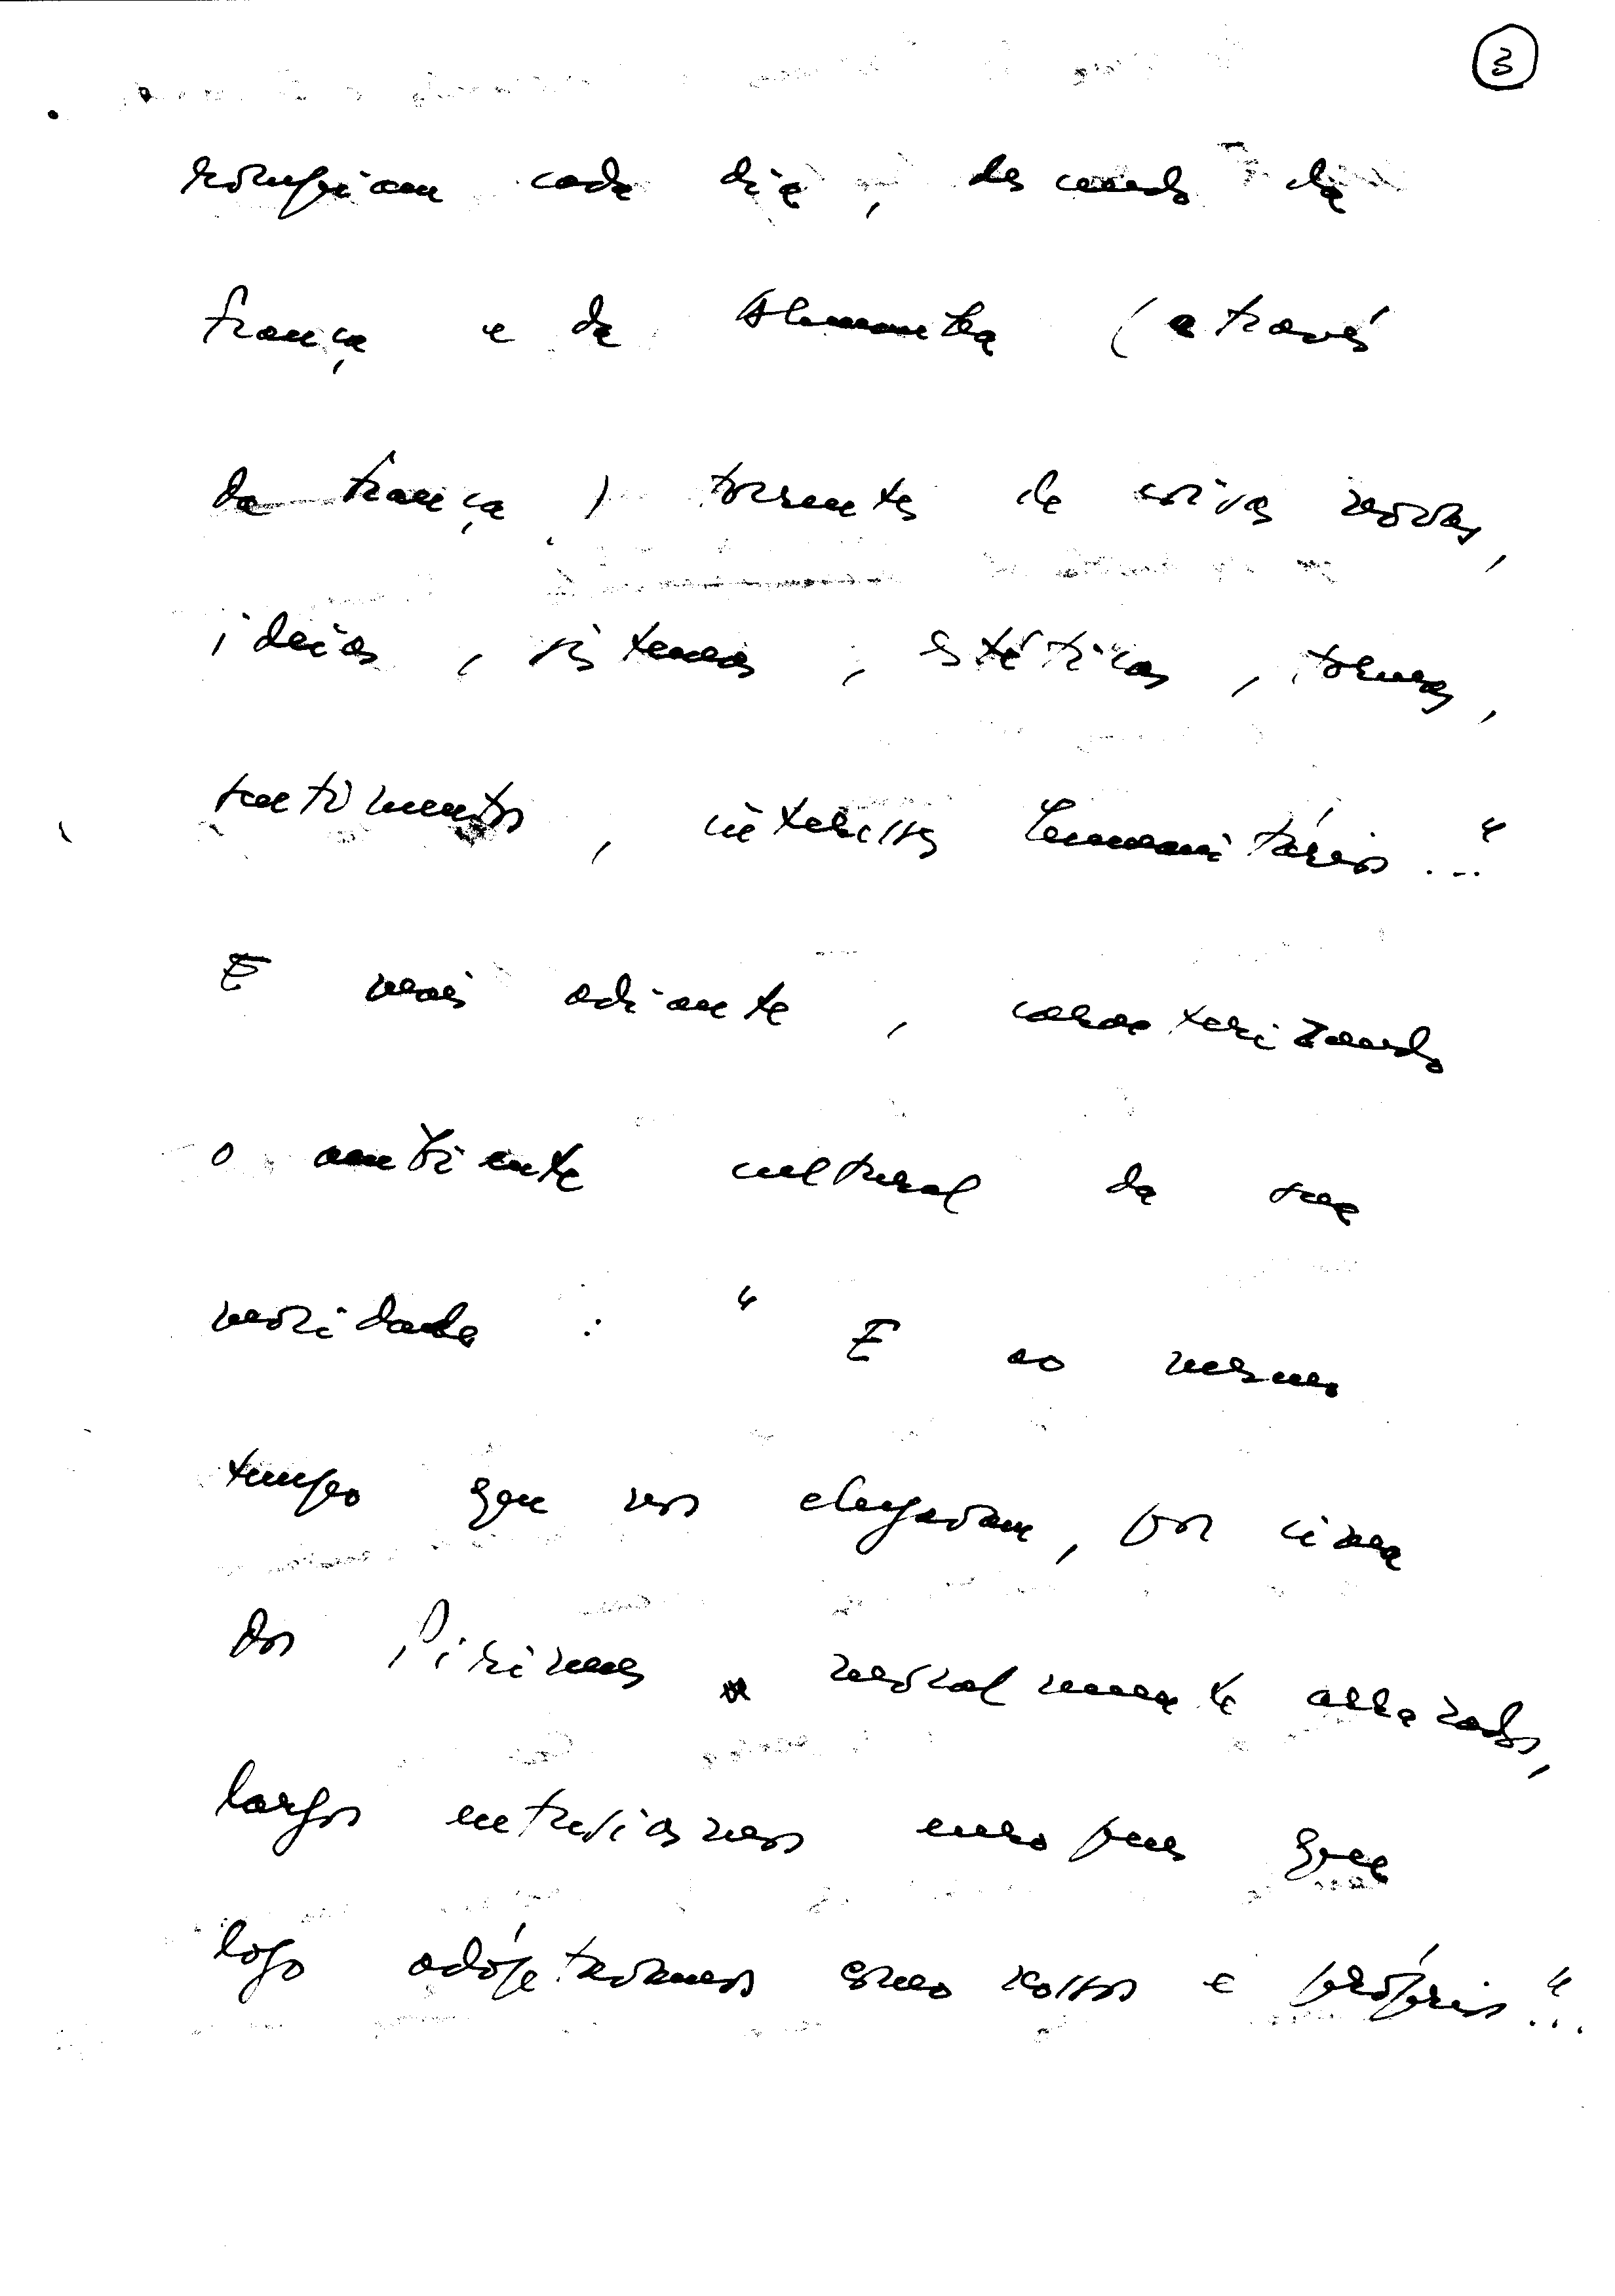 3
rompiam cada dia, descendo da
França e da Alemanha (através
da França) torrentes de coisas novas,
ideias, sistemas, estéticas, formas,
sentimentos, interesses humanitários..."
E mais adiante, caracterizando
o ambiente cultural da sua
mocidade : " E ao mesmo
tempo que nos chegavam, por cima
dos Pirinéus moralmente arrasados,
largos entusiasmos europeus que
logo adóptavamos como nossos e próprios"...